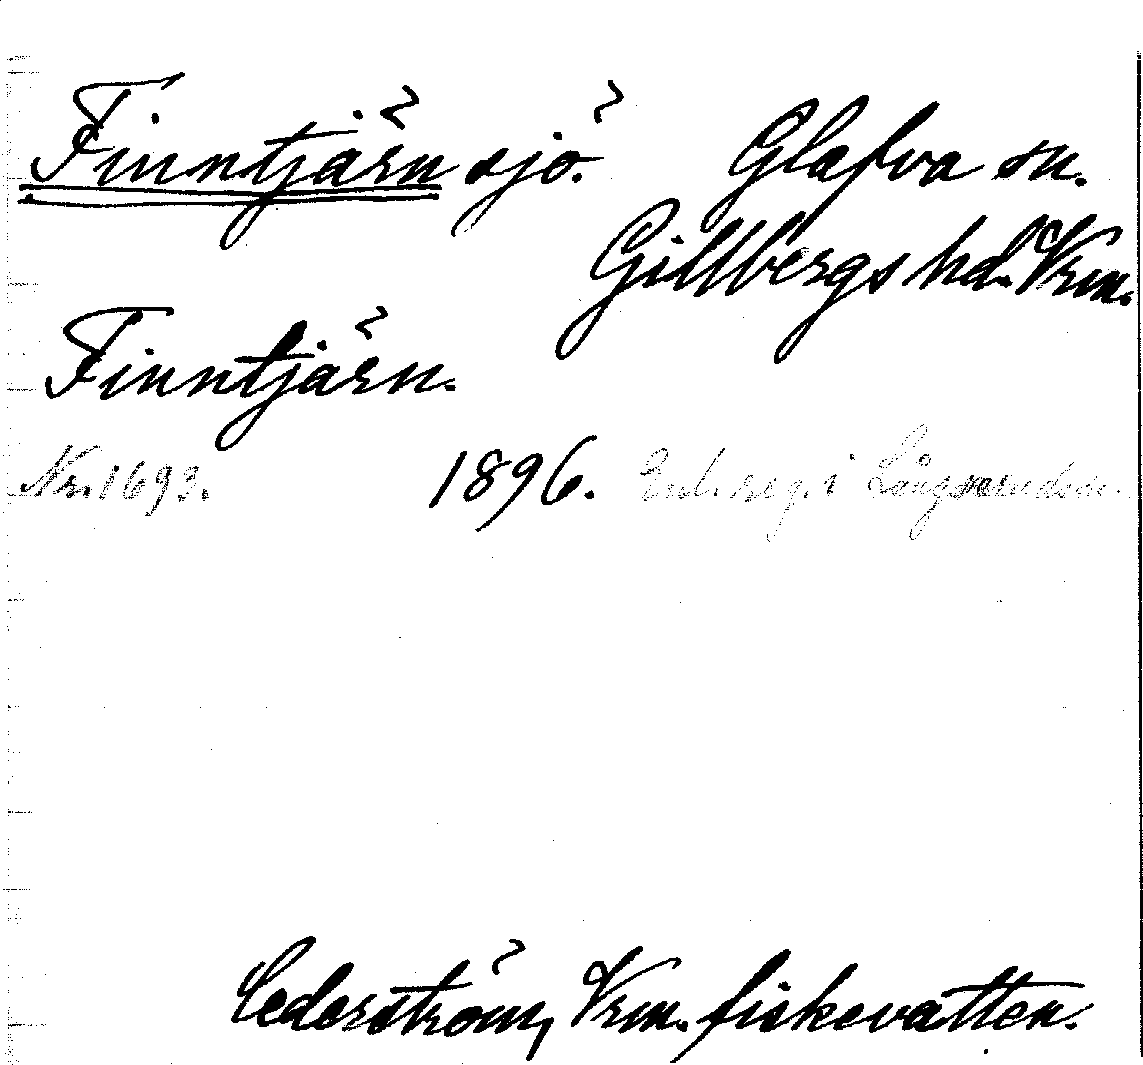 Finntjärn sjö. Glafva sn.
Gillbergs hd. Vrm.
Finntjärn.
Nr. 1693. 1896. Enl. reg. i Långserudssn.
Cederström, Vrm. fiskevatten.